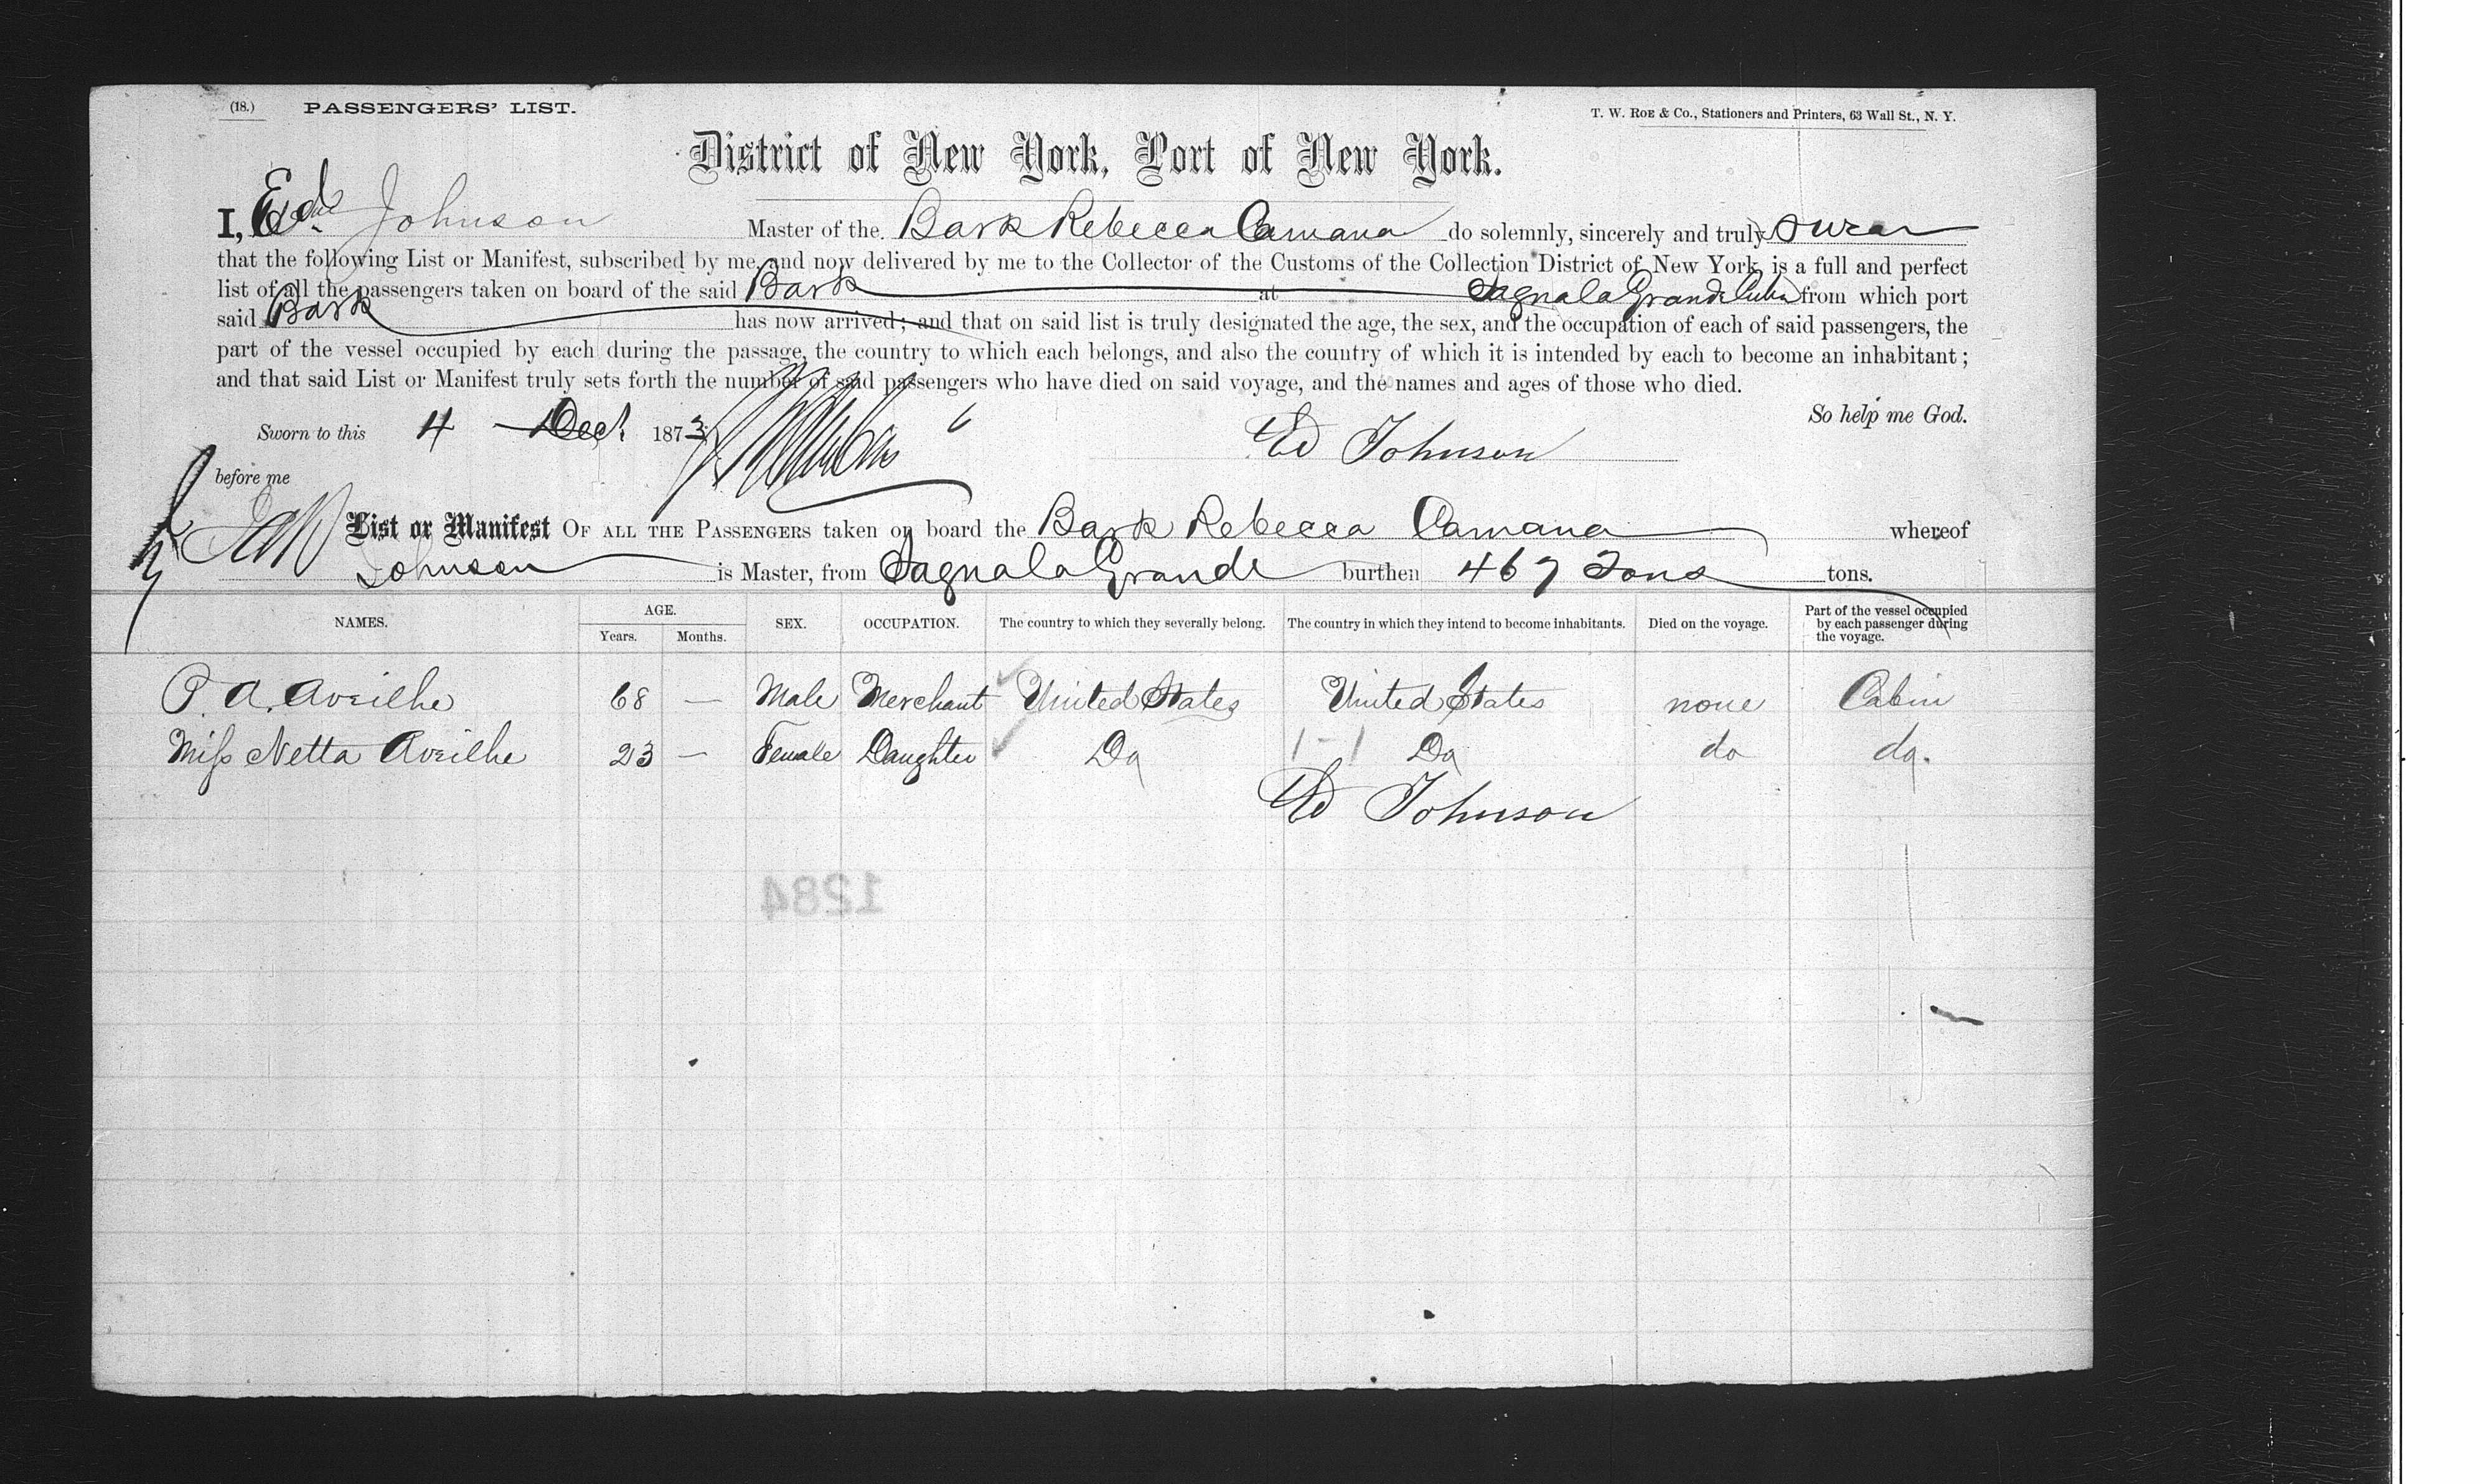 (18.) PASSENGERS' LIST.
T. W. ROE & Co., Stationers and Printers, 63 Wall St., N. Y.
District of New York, Port of New York.
I, Ed. Johnson Master of the Bark Rebecca Camana do solemnly, sincerely and truly swear
that the following List or Manifest, subscribed by me, and now delivered by me to the Collector of the Customs of the Collection District of New York, is a full and perfect
list of all the passengers taken on board of the said Bark at Sagua la Grande Cuba from which port
said Bark has now arrived; and that on said list is truly designated the age, the sex, and the occupation of each of said passengers, the
part of the vessel occupied by each during the passage, the country to which each belongs, and also the country of which it is intended by each to become an inhabitant;
and that said List or Manifest truly sets forth the number of said passengers who have died on said voyage, and the names and ages of those who died.
So help me God.
Sworn to this 4 Dec. 1873
Ed Johnson
before me
List or Manifest OF ALL THE PASSENGERS taken on board the Bark Rebecca Camana whereof
Johnson is Master, from Sagua la Grande burthen 467 Tons tons.
NAMES. AGE. Years. Months. SEX. OCCUPATION. The country to which they severally belong. The country in which they intend to become inhabitants. Died on the voyage. Part of the vessel occupied by each passenger during the voyage.
P. A. Aveilhe 68 — Male Merchant United States United States none Cabin
Miss Netta Aveilhe 23 — Female Daughter Do 1-1 Do do do.
Ed Johnson
1284